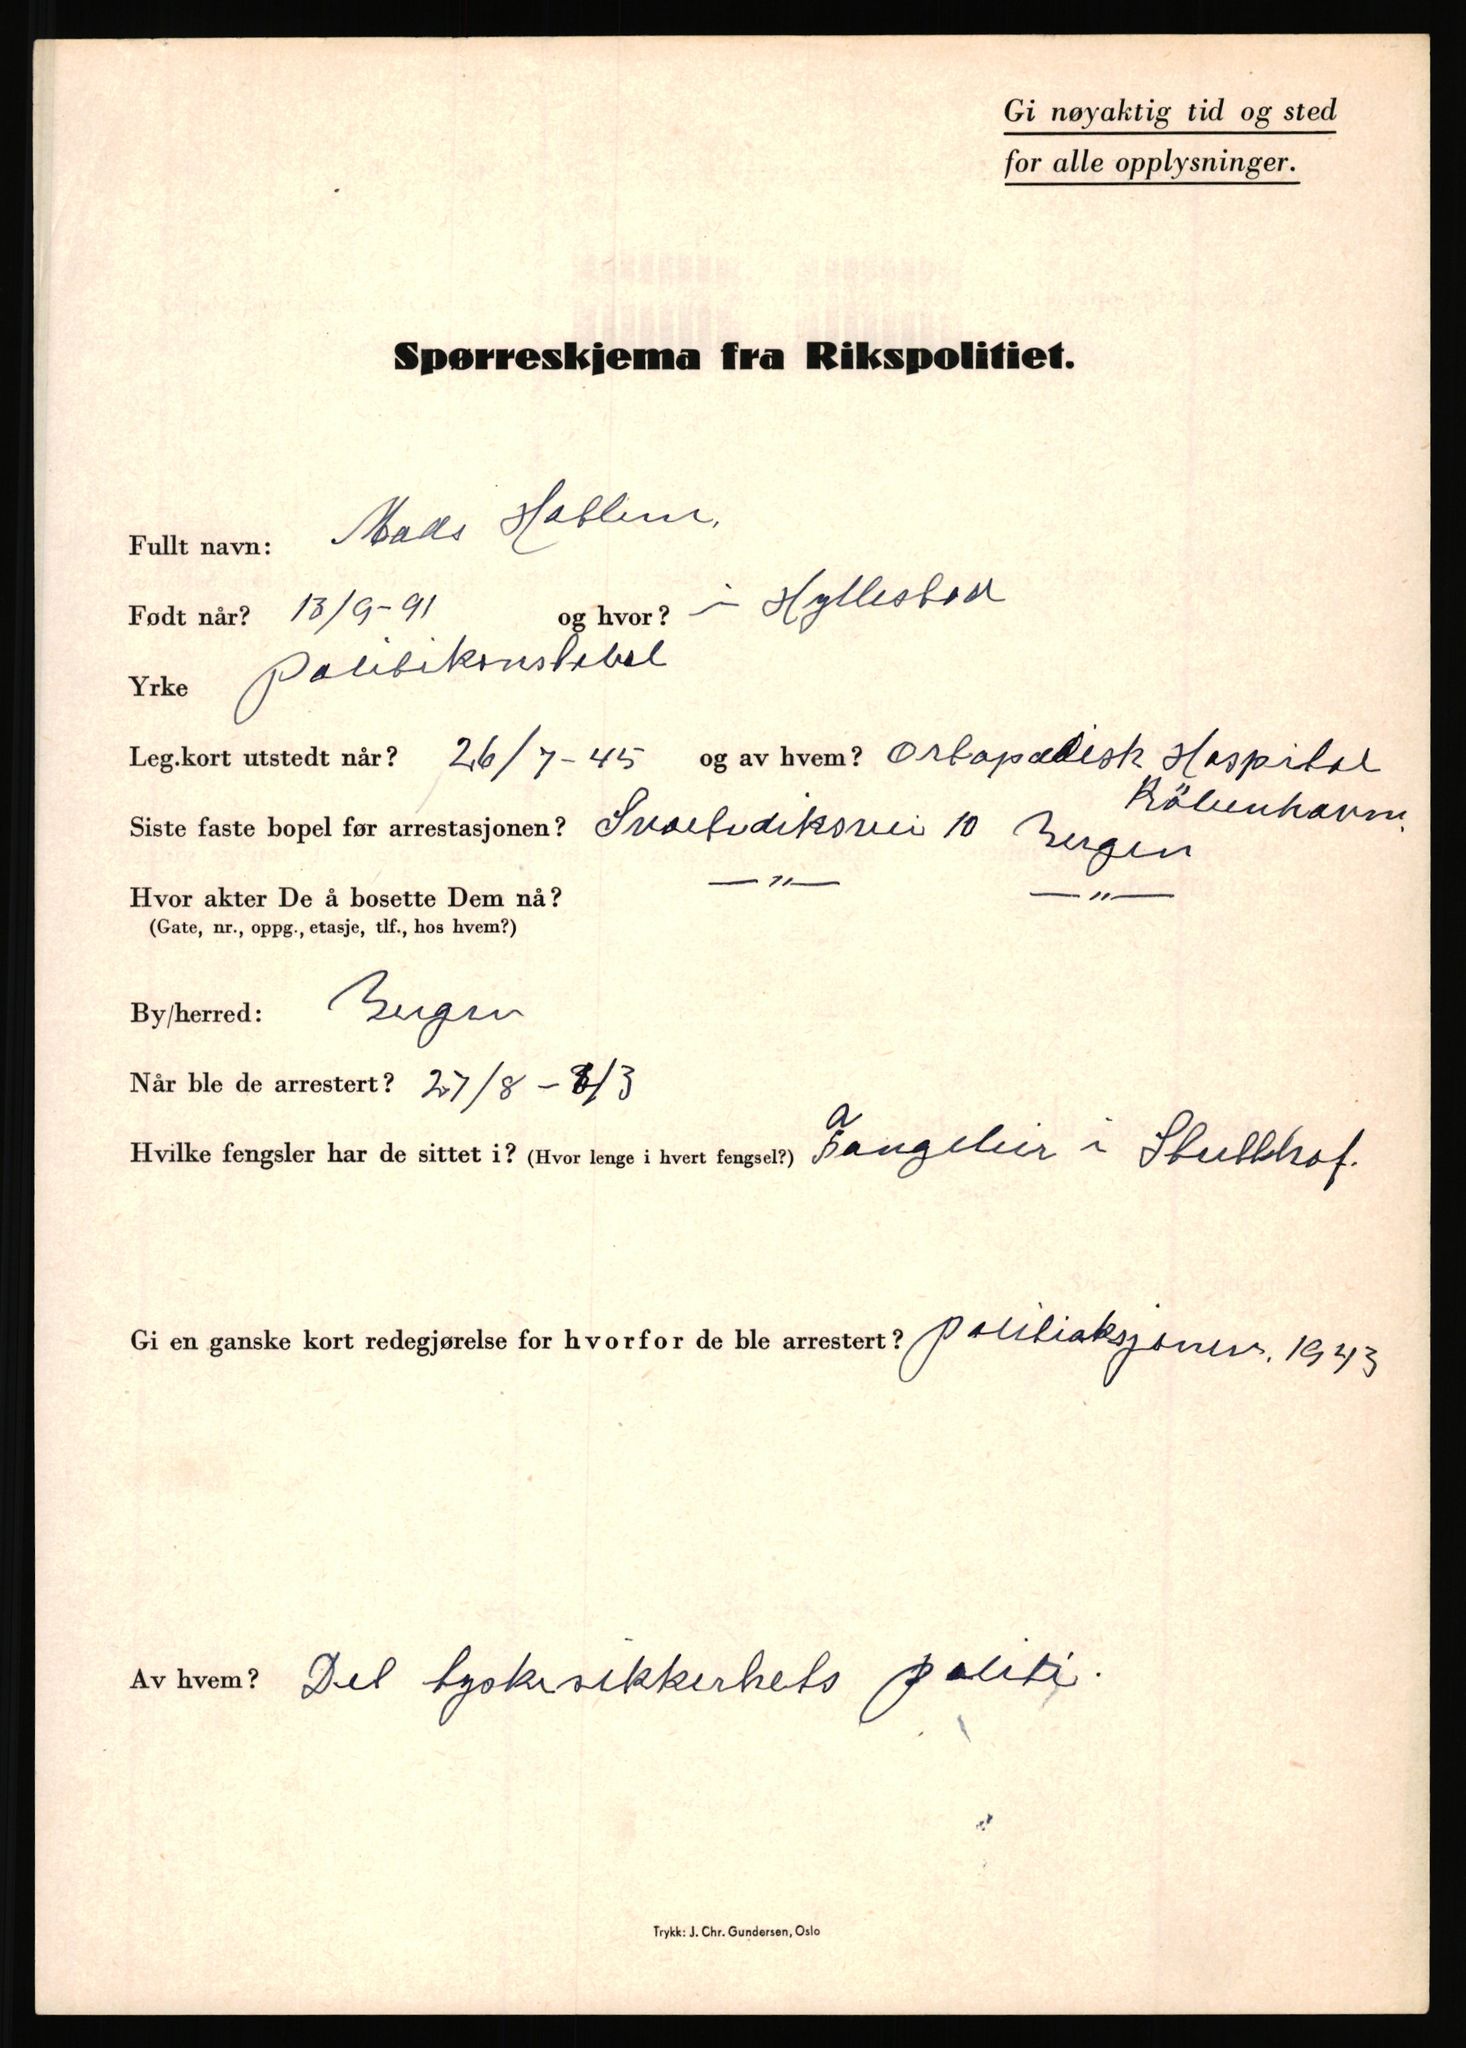 Gi nøyaktig tid og sted
for alle opplysninger.
Spørreskjema fra Rikspolitiet.
Fullt navn: Mads Hatlem.
Født når? 13/9-91 og hvor? i Hyllestad
Yrke politikonstabel
Leg.kort utstedt når? 26/7-45 og av hvem? Ortopædisk Hospital
Köbenhavn.
Siste faste bopel før arrestasjonen? 10 Bergen
Hvor akter De å bosette Dem nå? —〃— —〃—
(Gate, nr., oppg., etasje, tlf., hos hvem?)
By/herred: Bergen
Når ble de arrestert? 27/8-
Hvilke fengsler har de sittet i? (Hvor lenge i hvert fengsel?) Fangeleir i Stutthof.
Gi en ganske kort redegjørelse for hvorfor de ble arrestert? politiaksjonen. 1943
Av hvem? Det tyske sikkerhets politi.
Trykk: J. Chr. Gundersen, Oslo